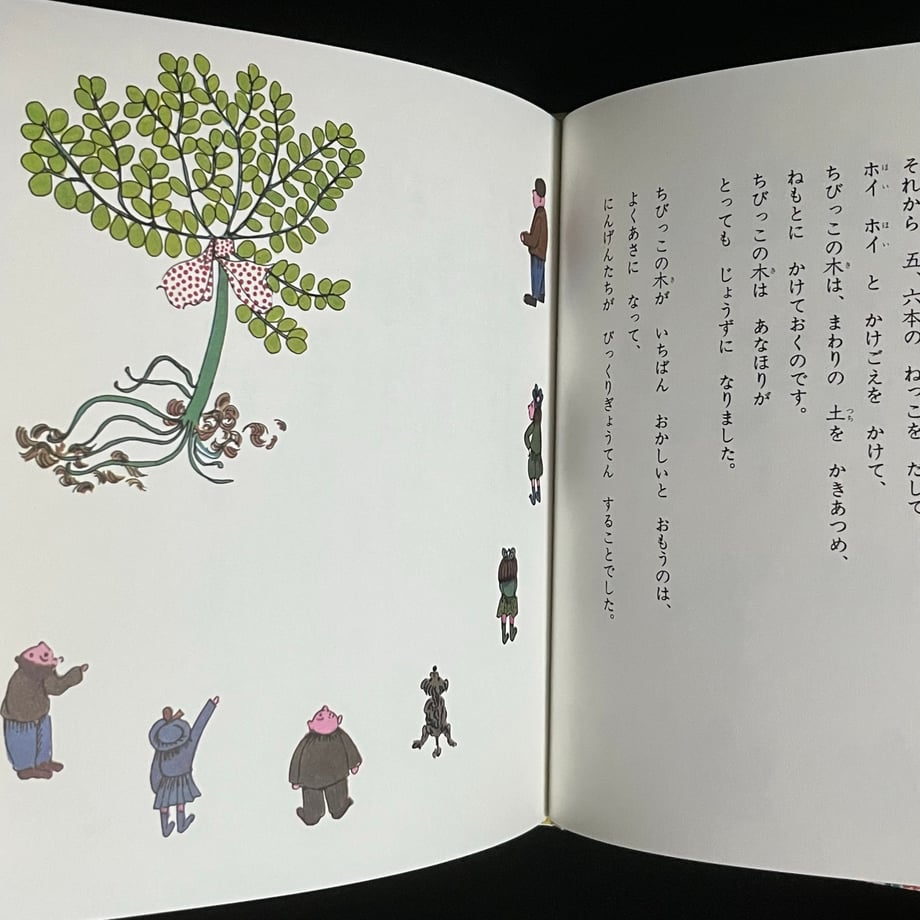 それから 五、六本の ねっこを だして
ホイ ホイ と かけごえを かけて、
ちびっこの木は、まわりの 土を かきあつめ、
ねもとに かけておくのです。
ちびっこの木は あなほりが
とっても じょうずに なりました。
ちびっこの木が いちばん おかしいと おもうのは、
よくあさに なって、
にんげんたちが びっくりぎょうてん することでした。